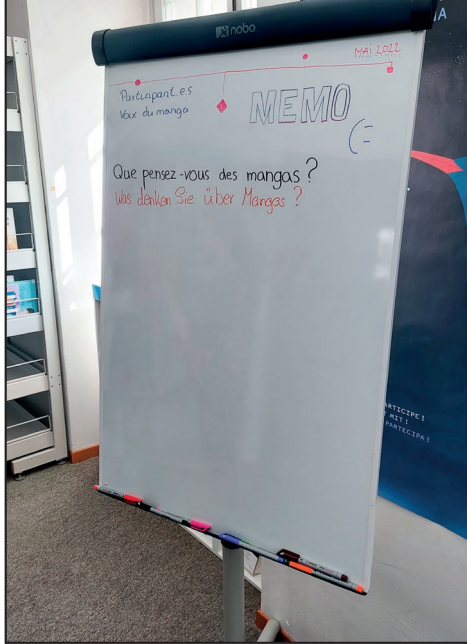 nobo
IA
MAI 2022
Participant.es
Voix du manga
MEMO
(=
Que pensez-vous des mangas ?
Was denken Sie über Mangas ?
ARTICIPE !
MIT !
PARTECIPA !